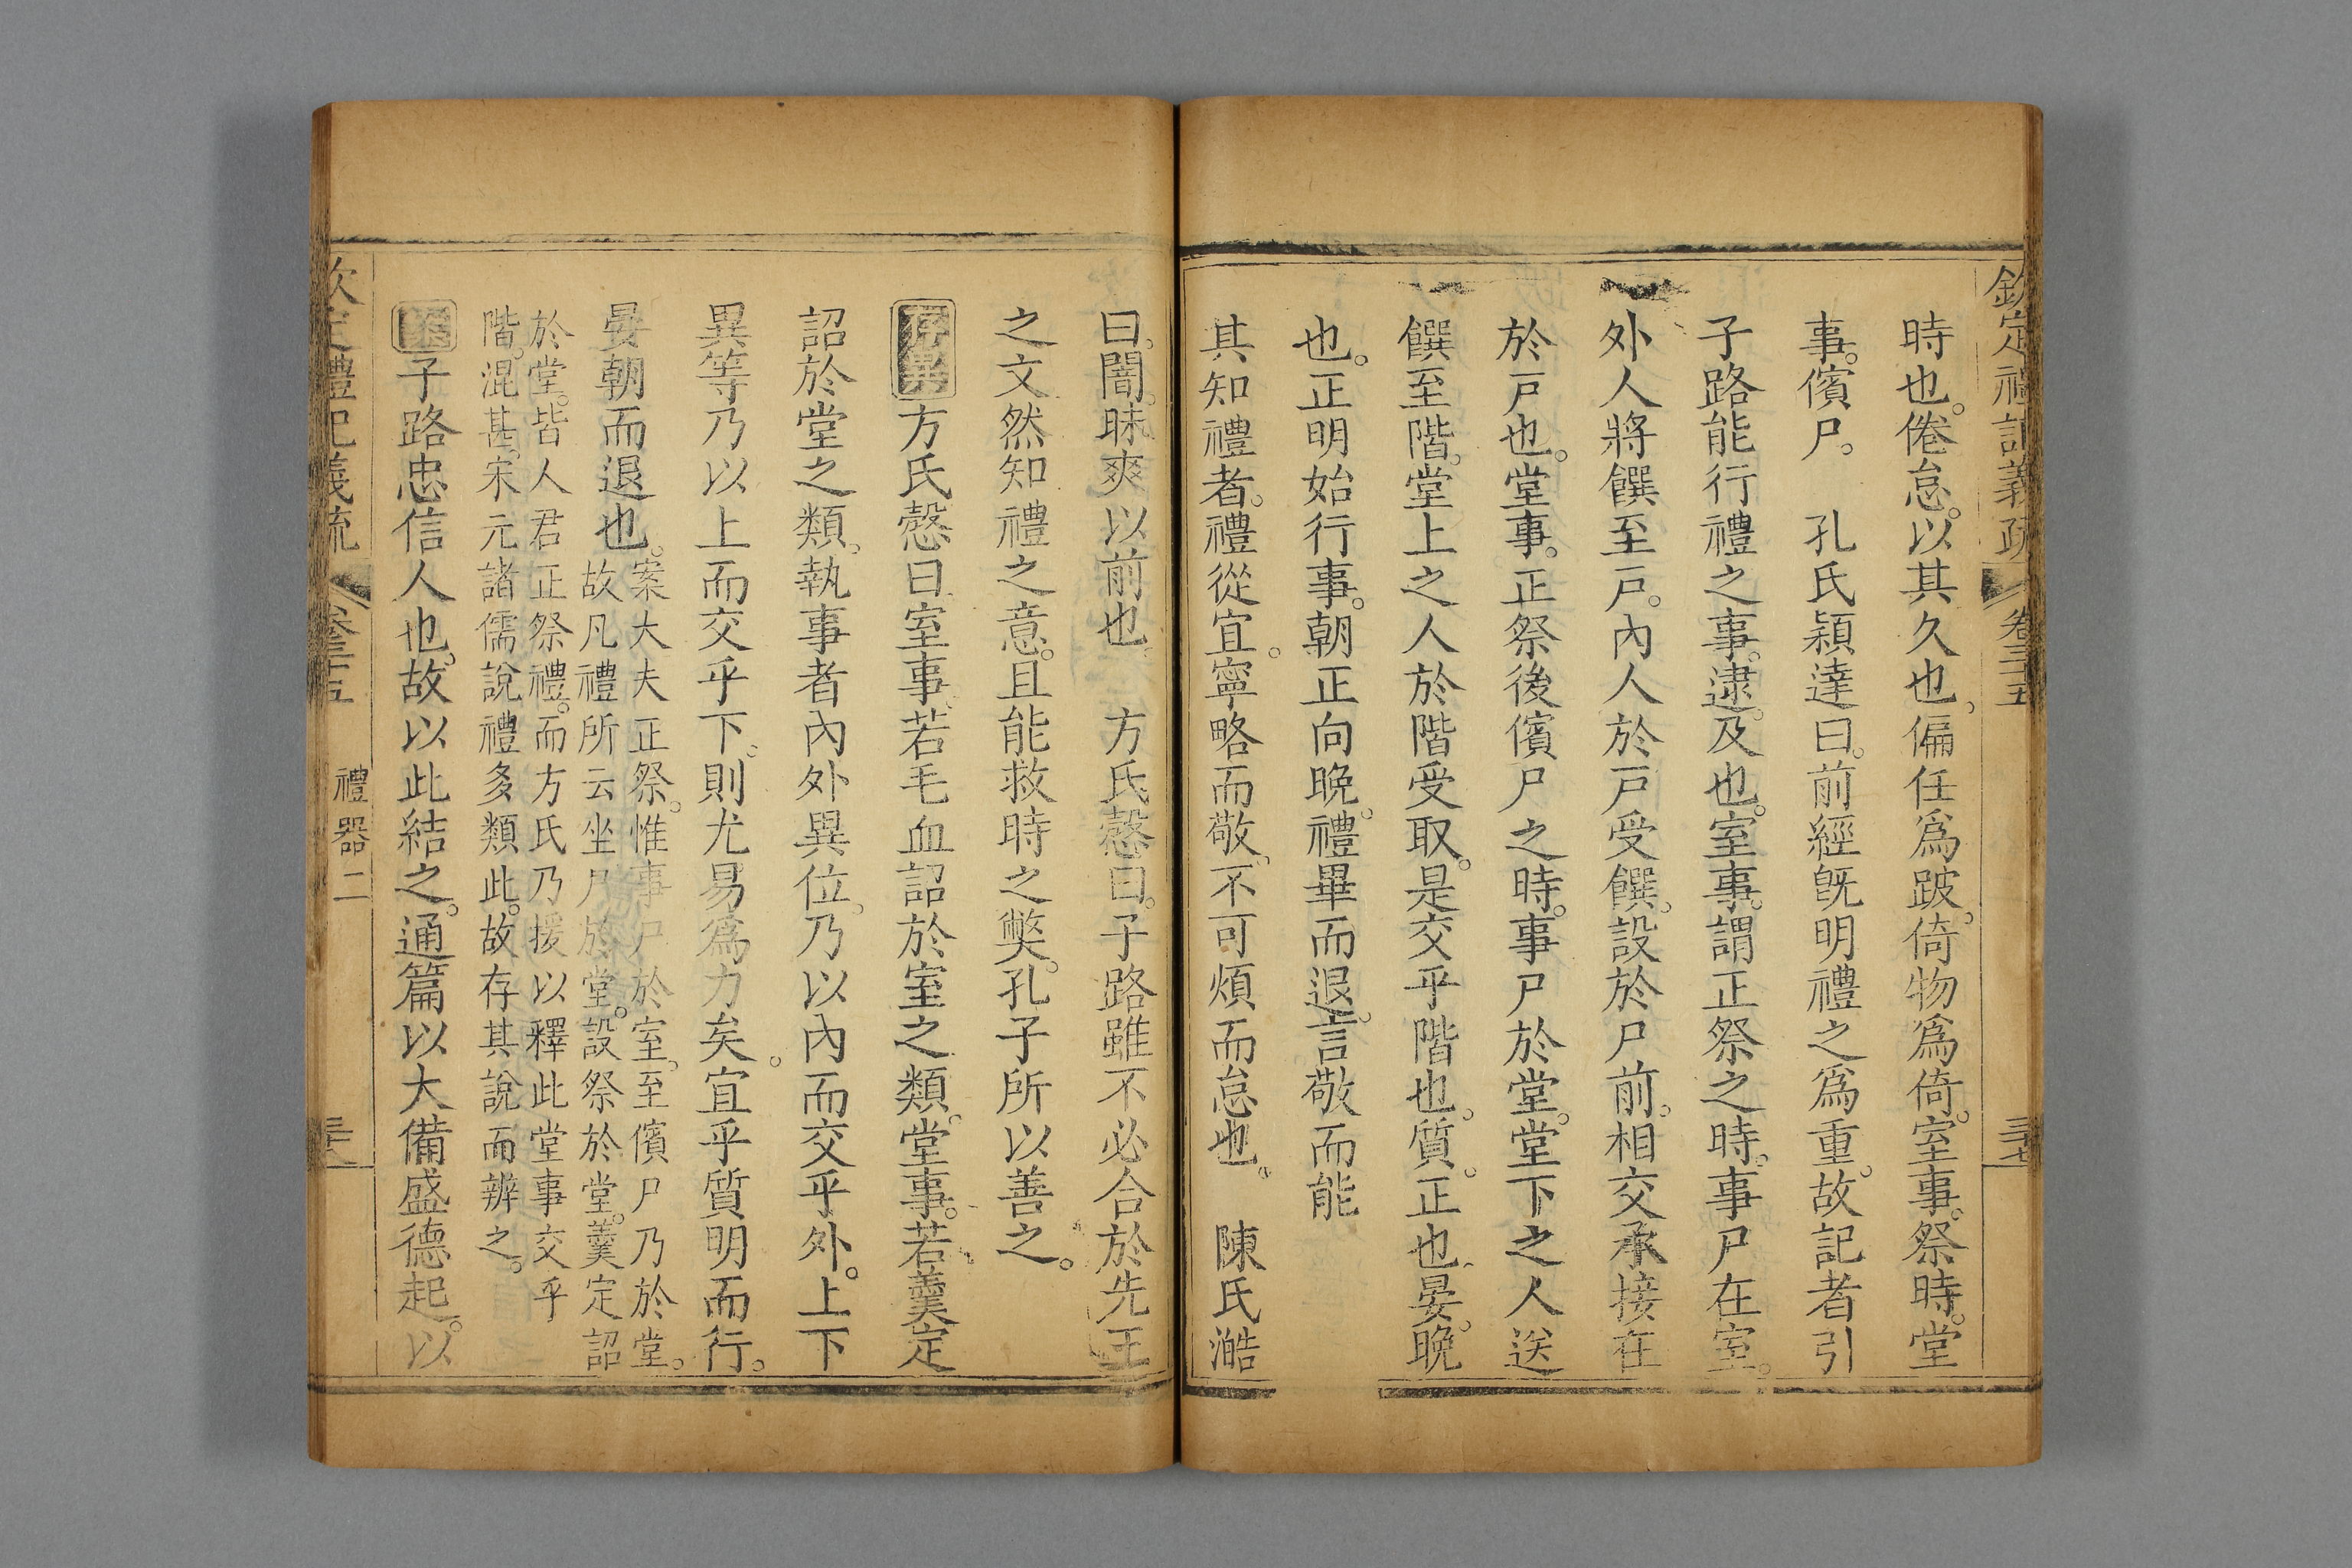 欽定禮記義疏 卷三十五 三十七
時也。倦怠。以其久也。偏任爲跛。倚物爲倚。室事。祭時。堂
事。儐尸。 孔氏穎達曰。前經旣明禮之爲重。故記者引
子路能行禮之事。逮。及也。室事。謂正祭之時。事尸在室。
外人將饌至戸。內人於戸受饌。設於尸前。相交承接在
於戸也。堂事。正祭後儐尸之時。事尸於堂。堂下之人送
饌至階。堂上之人於階受取。是交乎階也。質。正也。晏。晚
也。正明始行事。朝正向晚。禮畢而退。言敬而能
其知禮者。禮從宜。寧略而敬。不可煩而怠也。 陳氏澔
曰。闇。昧爽以前也。 方氏慤曰。子路雖不必合於先王
之文。然知禮之意。且能救時之獘。孔子所以善之。
存異 方氏慤曰。室事。若毛血詔於室之類。堂事。若羹定
詔於堂之類。執事者內外異位。乃以內而交乎外。上下
異等。乃以上而交乎下。則尤易爲力矣。宜乎質明而行。
晏朝而退也。案大夫正祭。惟事尸於室。至儐尸乃於堂。
故凡禮所云坐尸於堂。設祭於堂。羹定詔
於堂。皆人君正祭禮。而方氏乃援以釋此堂事交乎
階。混甚。宋元諸儒說禮多類此。故存其說而辨之。
案 子路忠信人也。故以此結之。通篇以大備盛德起。以
欽定禮記義疏 卷三十五 禮器二 三十八